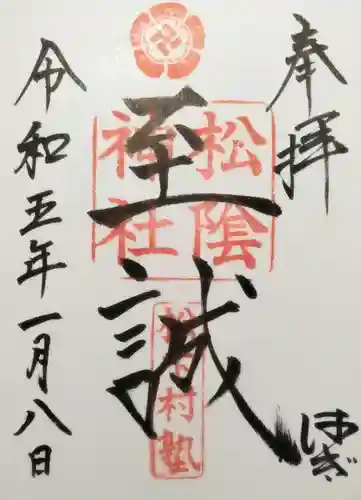 奉拝
松陰
神社
至誠
松下村塾
はぎ
令和五年一月八日